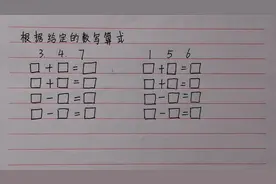 根据给定的数写算式
3 4 7 1 5 6
□+□=□ □+□=□
□+□=□ □+□=□
□-□=□ □-□=□
□-□=□ □-□=□